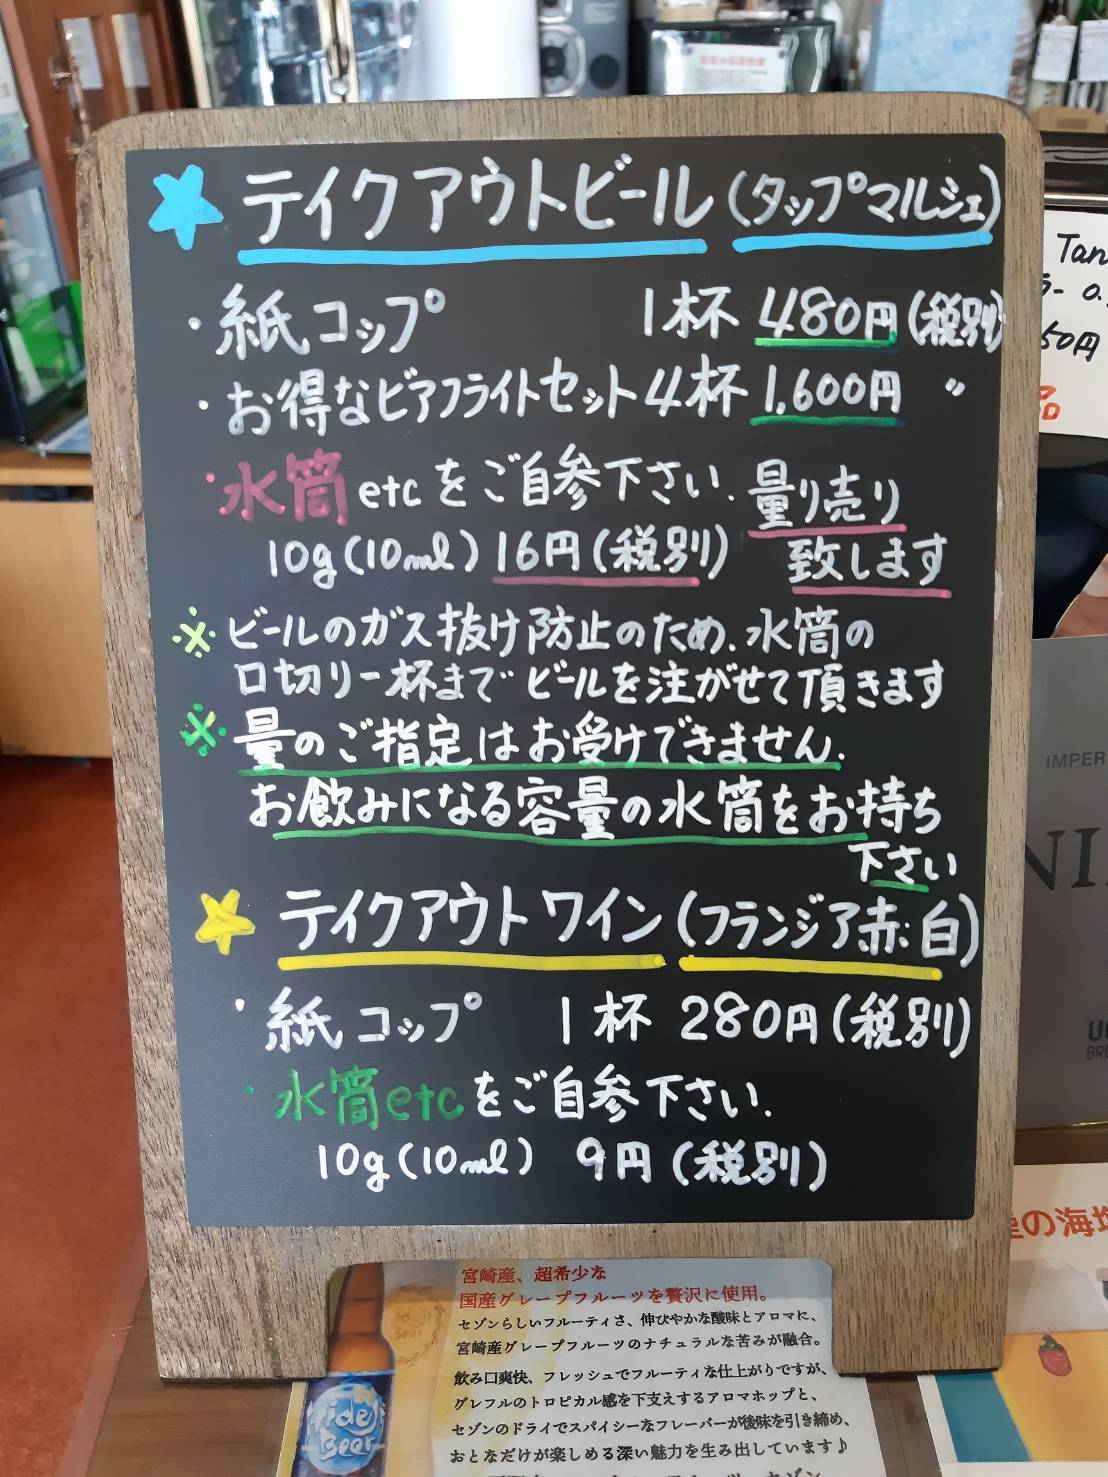 テイクアウトビール(タップマルシェ)
・紙コップ 1杯 480円(税別)
・お得なビアフライトセット4杯 1,600円 〃
・水筒etcをご自参下さい. 量り売り
10g(10ml) 16円(税別) 致します
※ビールのガス抜け防止のため.水筒の
口切り一杯までビールを注がせて頂きます
※量のご指定はお受けできません.
お飲みになる容量の水筒をお持ち
下さい
テイクアウトワイン(フランジア赤・白)
・紙コップ 1杯 280円(税別)
・水筒etcをご自参下さい.
10g(10ml) 9円(税別)
Tan
ラー 0.
50円
品
IMPER
NI
U
BRE
の海
宮崎産、超希少な
国産グレープフルーツを贅沢に使用。
セゾンらしいフルーティさ、伸びやかな酸味とアロマに、
宮崎産グレープフルーツのナチュラルな苦みが融合。
飲み口爽快、フレッシュでフルーティな仕上がりですが、
グレフルのトロピカル感を下支えするアロマホップと、
セゾンのドライでスパイシーなフレーバーが後味を引き締め、
おとなだけが楽しめる深い魅力を生み出しています♪
Hideji
Beer